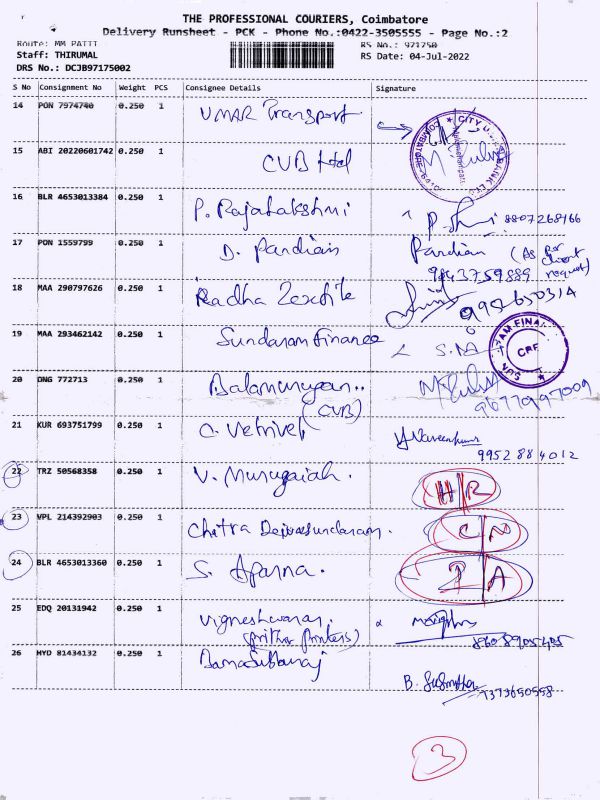 THE PROFESSIONAL COURIERS, Coimbatore
Delivery Runsheet - PCK - Phone No.:0422-3505555 - Page No.:2
Route: MM PATTI RS No.: 971750
Staff: THIRUMAL RS Date: 04-Jul-2022
DRS No.: DCJB97175002
S No Consignment No Weight PCS Consignee Details Signature
14 PON 7974740 0.250 1 UMAR Transport
15 ABI 20220601742 0.250 1 CUB Ltd
16 BLR 4653013384 0.250 1 P. Rajalakshmi 8807268166
17 PON 1559799 0.250 1 D. Pandian Pandian (As per client request)
9843759889
18 MAA 290797626 0.250 1 Radha Textile 9952650314
19 MAA 293462142 0.250 1 Sundaram Finance S.M
CPF
20 DNG 772713 0.250 1 Balamurugan..
(CUB) 9677097009
21 KUR 693751799 0.250 1 C. Vetrivel Naveenkumar
9952884012
22 TRZ 50568358 0.250 1 V. Murugaiah. H R
23 VPL 214392903 0.250 1 Chitra Deivasundaram. C N
24 BLR 4653013360 0.250 1 S. Aparna. A
25 EDQ 20131942 0.250 1 Vigneshwaran.
(Prithvi Printers)
26 HYD 81434132 0.250 1 Ramasubburaj
7373650558
3